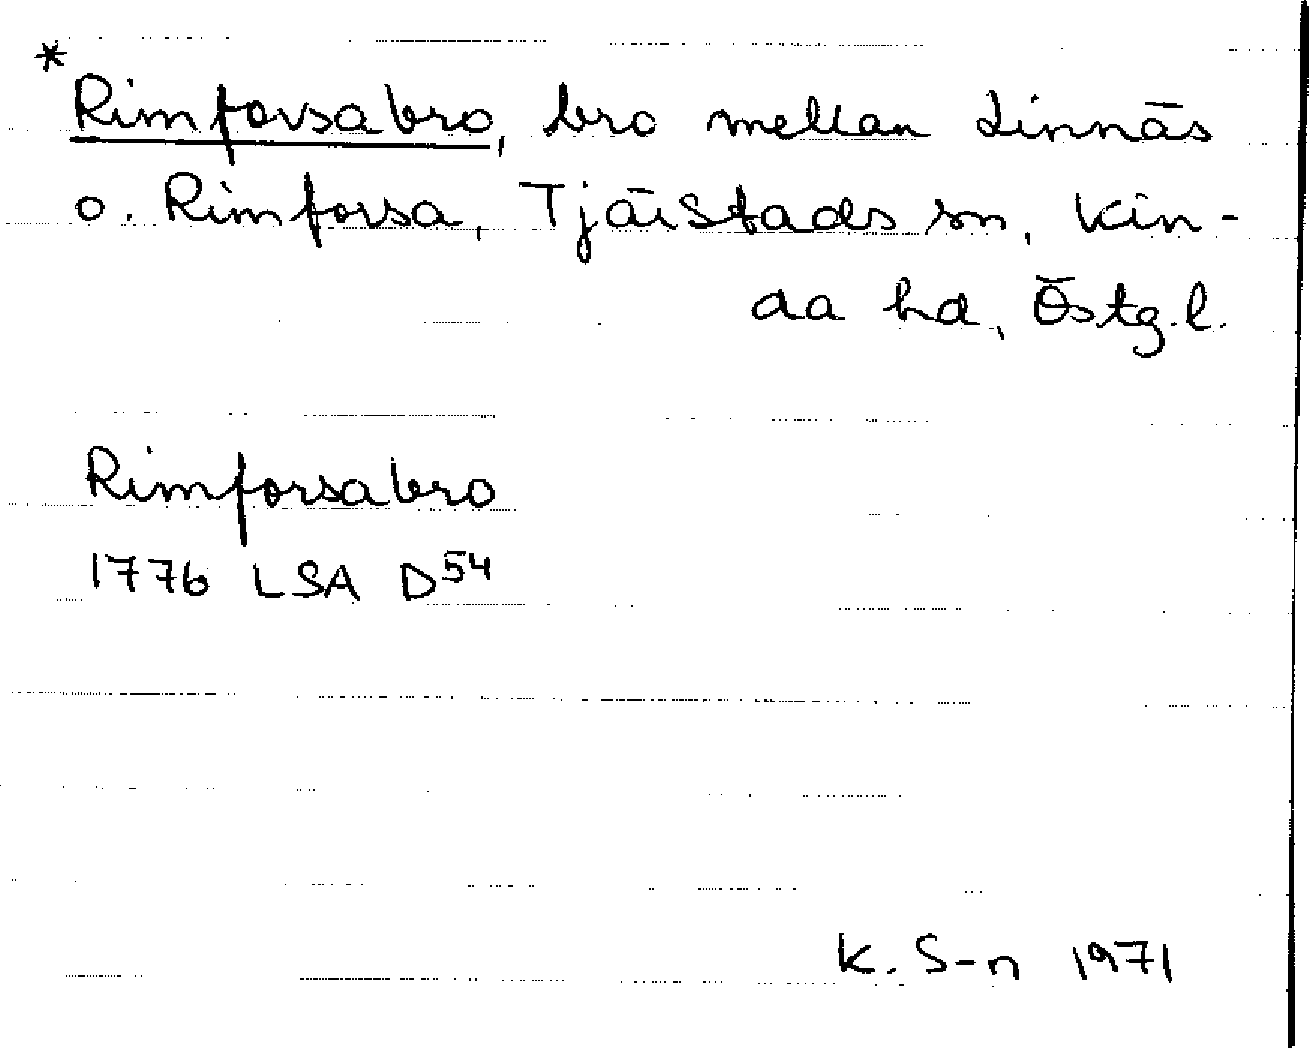 *
Rimforsabro, bro mellan Linnäs
o. Rimforsa, Tjärstads sn, Kin-
da hd, Östg.l.
Rimforsabro
1776 LSA D54
K. S-n 1971